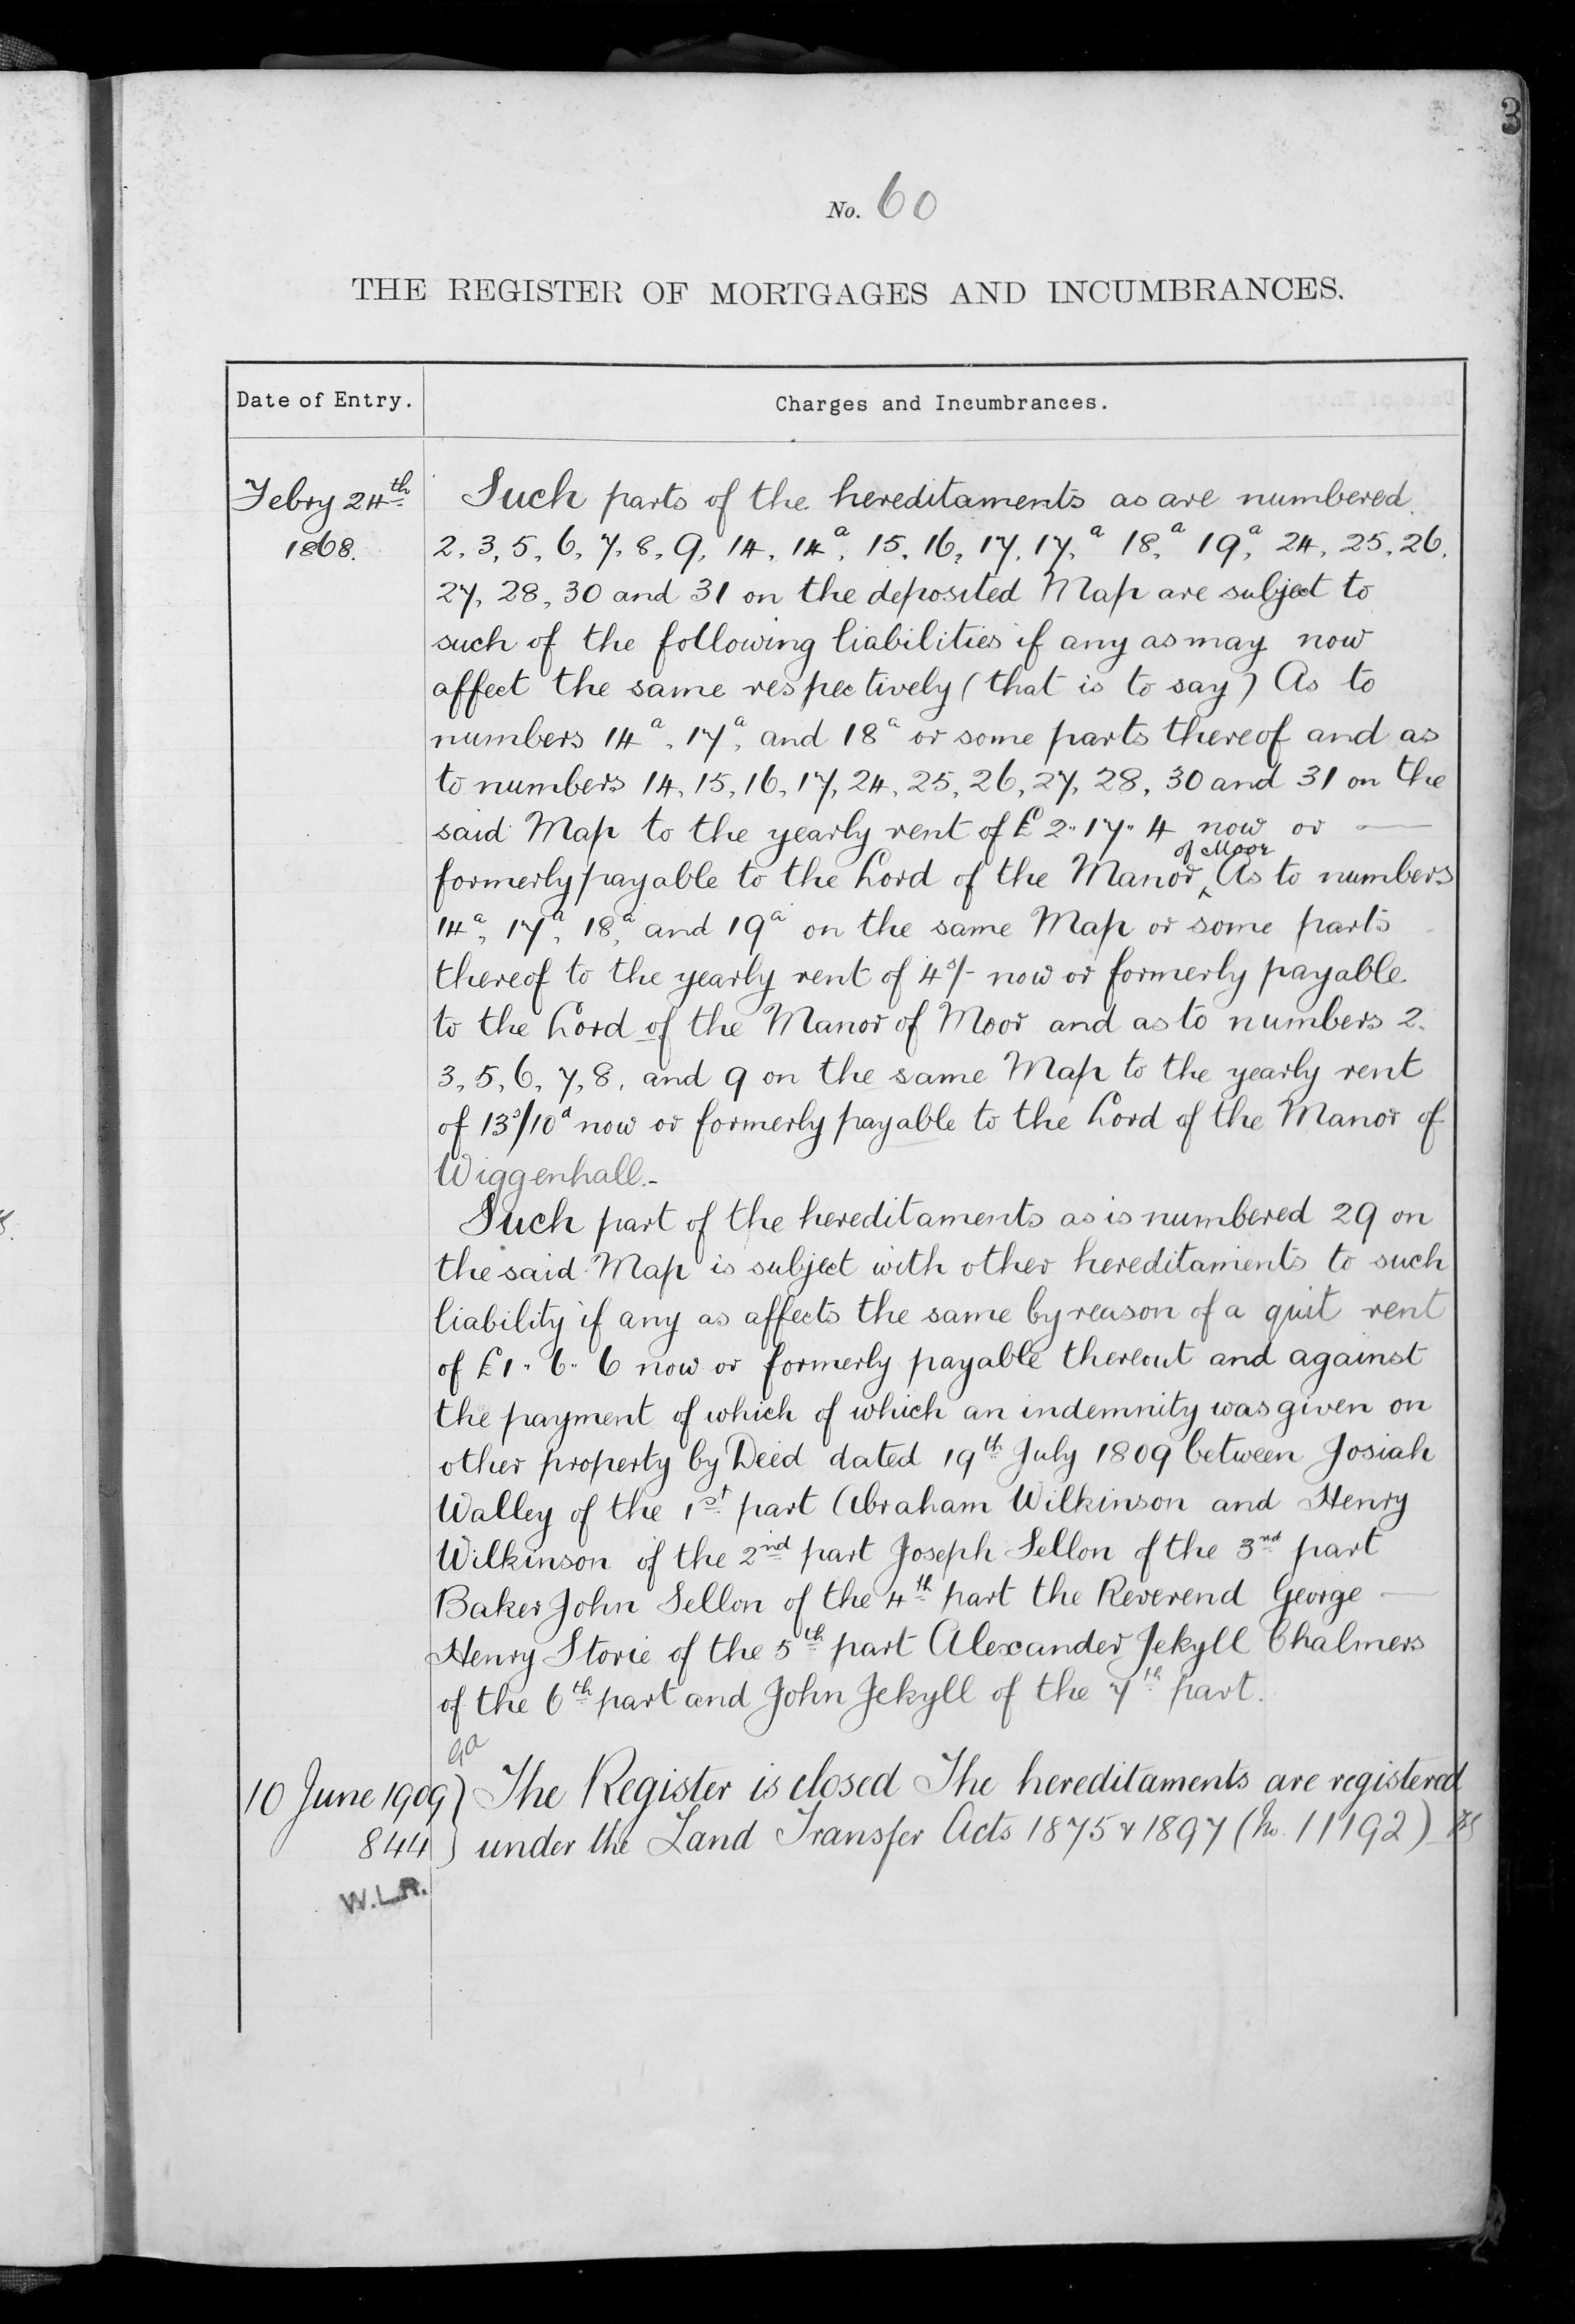 3
No. 60
THE REGISTER OF MORTGAGES AND INCUMBRANCES.
Date of Entry.
Charges and Incumbrances.
Febry 24th
1868.
Such parts of the hereditaments as are numbered
2, 3, 5, 6, 7, 8, 9, 14, 14a, 15, 16, 17, 17,a 18,a 19a, 24, 25, 26,
27, 28, 30 and 31 on the deposited Map are subject to
such of the following liabilities if any as may now
affect the same respectively (that is to say) As to
numbers 14a, 17a, and 18a or some parts thereof and as
to numbers 14, 15, 16, 17, 24, 25, 26, 27, 28, 30 and 31 on the
said Map to the yearly rent of £2"17"4 now or —
formerly payable to the Lord of the Manor of Moor As to numbers
14a, 17a, 18,a and 19a on the same Map or some parts
thereof to the yearly rent of 4s/- now or formerly payable
to the Lord of the Manor of Moor and as to numbers 2.
3, 5, 6, 7, 8, and 9 on the same Map to the yearly rent
of 13s/10d now or formerly payable to the Lord of the Manor of
Wiggenhall.-
Such part of the hereditaments as is numbered 29 on
the said Map is subject with other hereditaments to such
liability if any as affects the same by reason of a quit rent
of £1"6"6 now or formerly payable thereout and against
the payment of which of which an indemnity was given on
other property by Deed dated 19th July 1809 between Josiah
Walley of the 1st part Abraham Wilkinson and Henry
Wilkinson of the 2nd part Joseph Sellon of the 3nd part
Baker John Sellon of the 4th part the Reverend George —
Henry Storie of the 5th part Alexander Jekyll Chalmers
of the 6th part and John Jekyll of the 7th part.
10 June 1909 } The Register is closed The hereditaments are registered
844 } under the Land Transfer Acts 1875 & 1897 (No. 11192)
W.L.R.